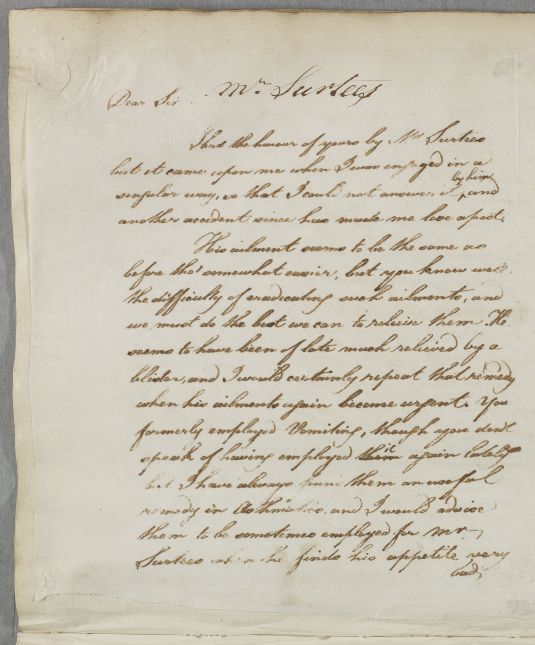 Mr Surtees
Dear Sir
I had the honour of yours by Mr Surtees
but it came upon me when I was engaged in a
singular way, so that I could not answer it by him, and
another accident since has made me lose a post.
His ailment seems to be the same as
before tho' somewhat easier, but you know well
the difficulty of eradicating such ailments, and
we must do the best we can to relieve them. He
seems to have been of late much relieved by a
blister, and I would certainly repeat that remedy
when his ailments again become urgent. You
formerly employed Vomiting, though you dont
speak of having employed it again lately
but I have always found them an useful
remedy in Asthmatics, and I would advise
them to be sometimes employed for Mr
Surtees when he finds his appetite very
bad,